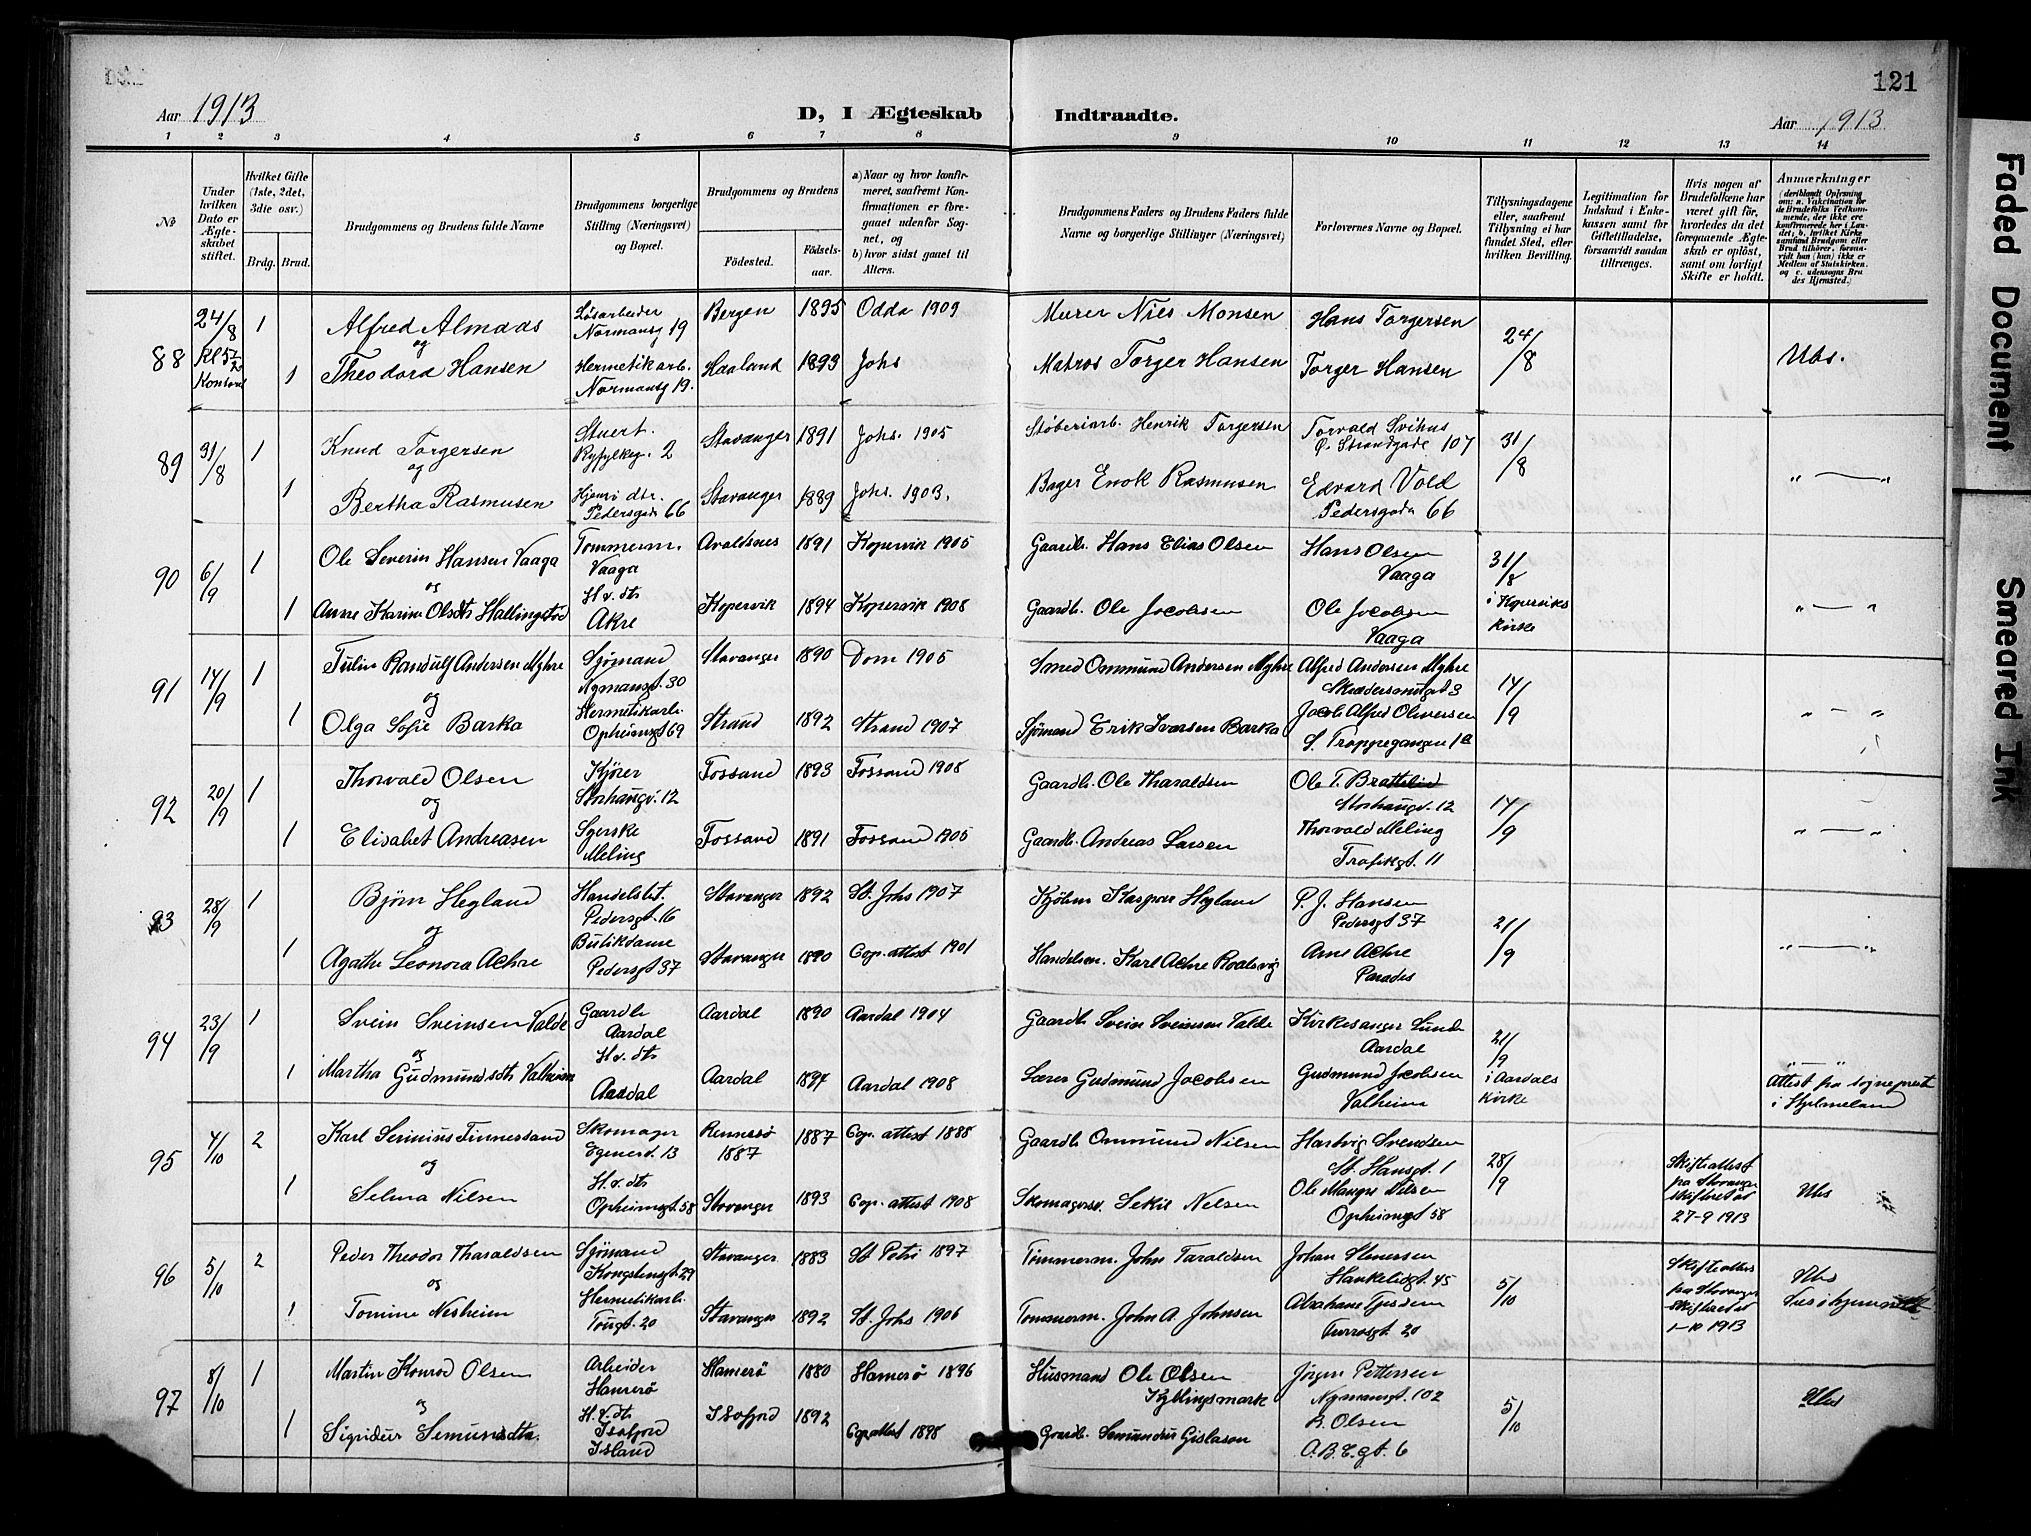 121
Aar 1913
D, I Ægteskab Indtraadte.
Aar 1913
1 2 3 4 5 6 7 8 9 10 11 12 13 14
№
Under hvilken Dato er Ægteskabet stiftet.
Hvilket Gifte (1ste, 2det, 3die osv.)
Brdg. Brud.
Brudgommens og Brudens fulde Navne
Brudgommens borgerlige Stilling (Næringsvei) og Bopæl.
Brudgommens og Brudens
Födested. Födsels-aar.
a) Naar og hvor konfirmeret, saafremt Konfirmationen er foregaaet udenfor Sognet, og
b) hvor sidst gaaet til Alters.
Brudgommens Faders og Brudens Faders fulde Navne og borgerlige Stillinger (Næringsvei)
Forlovernes Navne og Bopæl.
Tillysningsdagene eller, saafremt Tillysning ei har fundet Sted, efter hvilken Bevilling.
Legitimation for Indskud i Enkekassen samt for Giftetilladelse, forsaavidt saadan tiltrænges.
Hvis nogen af Brudefolkene har været gift för, hvorledes da det foregaaende Ægteskab er oplöst, samt om lovligt Skifte er holdt.
Anmærkninger
(deriblandt Oplysning om: a. Vakcination for de Brudefolks Vedkommende, der ikke ere konfirmerede her i Landet; b. hvilket Kirkesamfund Brudgom eller Brud tilhörer, forsaavidt han (hun) ikke er Medlem af Statskirken. og c. udensogns Brudes Hjemsted.)
88 24/8 1 Alfred Almaas Løsarbeider Normansg 19 Bergen 1895 Odda 1909 Murer Nies Monsen Hans Torgersen 24/8 Ubs.
Kl 5½ Kontoret
og
1 Theodora Hansen Hermetikarb. Normansg 19. Haaland 1893 Johs Matros Torger Hansen Torger Hansen
89 31/8 1 Knud Torgersen Stuert. Ryfylkeg. 2 Stavanger 1891 Johs. 1905 Støberiarb. Henrik Torgersen Torvald Svihus Ø. Strandgade 107 31/8 " — "
og
1 Bertha Rasmusen Hjemv dtr. Pedersgade 66 Stavanger 1889 Johs. 1903. Bager Enok Rasmusen Edvard Vold Pedersgada 66
90 6/9 1 Ole Severin Hansen Vaaga Tømmerm. Vaaga Avaldsnes 1891 Kopervik 1905 Gaardb. Hans Elias Olsen Hans Olsen Vaaga 31/8 i Koperviks Kirke " — "
og
1 Anne Karine Olsdtr Hallingstød H.v. dtr Akre Kopervik 1894 Kopervik 1908 Gaardb. Ole Jocobsen Ole Jocobsen Vaaga
91 14/9 1 Tulin Randulf Andersen Myhre Sjømand Nymansgt. 30 Stavanger 1890 Dom 1905 Smed Ommund Andersen Myhre Alfred Andersen Myhre 14/9 " — "
og
1 Olga Sofie Barka Hermetikarb. Opheimsgt 69 Strand 1892 Strand 1907 Sjømand Erik Ivarsen Barka Jacob Alfred Oliversen S. Trappegangen 1a
92 20/9 1 Thorvald Olsen Kjører Storhaugv. 12 Fossand 1893 Fossand 1908 Gaardb. Ole Tharaldsen Ole T. Brattelid Storhaugv. 12 14/9 " — "
og
1 Elisabet Andreasen Syerske Meling Fossand 1891 Fossand 1905 Gaardb. Andreas Larsen Thorvald Meling Trafikgt. 11
93 28/9 1 Bjørn Hegland Handelsbt. Pedersgt. 16 Stavanger 1892 St. Johs 1907 Kjøbm Kasper Hegland P. J. Hansen Pedersgt 37 21/9 " — "
og
1 Agathe Leonora Achre Butikdame Pedersgt 37 Stavanger 1890 Cop. attest 1901 Handelsm. Karl Achre Roalsvig Arne Achre Paradis
94 23/9 1 Svein Sveinsen Valde Gaardb Aardal Aardal 1890 Aardal 1904 Gaardb Svein Sveinsen Valde Kirkesanger Lunde Aardal 21/9 i Aardals Kirke " — " Attest fra sognepræst i Hjelmeland
og
1 Martha Gudmundsdtr Valheim H.v. dtr Aardal Aardal 1897 Aardal 1908 Lærer Gudmund Jacobsen Gudmund Jocobsen Valheim
95 4/10 2 Karl Serinius Finnessand Skomager Egenesd. 13 Rennesø 1887 1887 Cop. attest 1888 Gaardb Ommund Nilsen Hartvig Svendsen St. Hansgt. 1 28/9 Skifteattest fra Stavanger skifteret av 27-9 1913 Ubs
og
1 Selma Nilsen H.v. dtr Opheimsgt. 58 Stavanger 1893 Cop. attest 1908 Skomagersv. Sekil Nilsen Ole Mangs Nilsen Opheimsgt 58
96 5/10 2 Peder Theodor Tharaldsen Sjømand Kongstensgt. 29 Stavanger 1883 St Petri 1897 Tømmerm. John Taraldsen Johan Stenersen Hankelidgt. 45 5/10 Skifteattest fra Stavanger skifteret av 1-10 1913 Ubs
og
1 Tomine Nesheim Hermetikarb. Tougt. 20 Stavanger 1892 St. Johs 1906 Tømmerm. John A. Johnsen Abrahane Turrosgt. 20
97 8/10 1 Martin Konrad Olsen Arbeider Hamerø Hamerö 1880 Hamerö 1896 Husmand Ole Olsen Kyllingsmark Jörgen Pettersen Nymansgt. 102 5/10 Ubs
og
1 Sigridur Semundsdtr. H.v. dtr Isafjord Island Isafjord 1892 Cop attest 1898 Gaardb. Semundur Gislason B. Olsen A.B.E.gt. 6
Faded Document
Smeared Ink